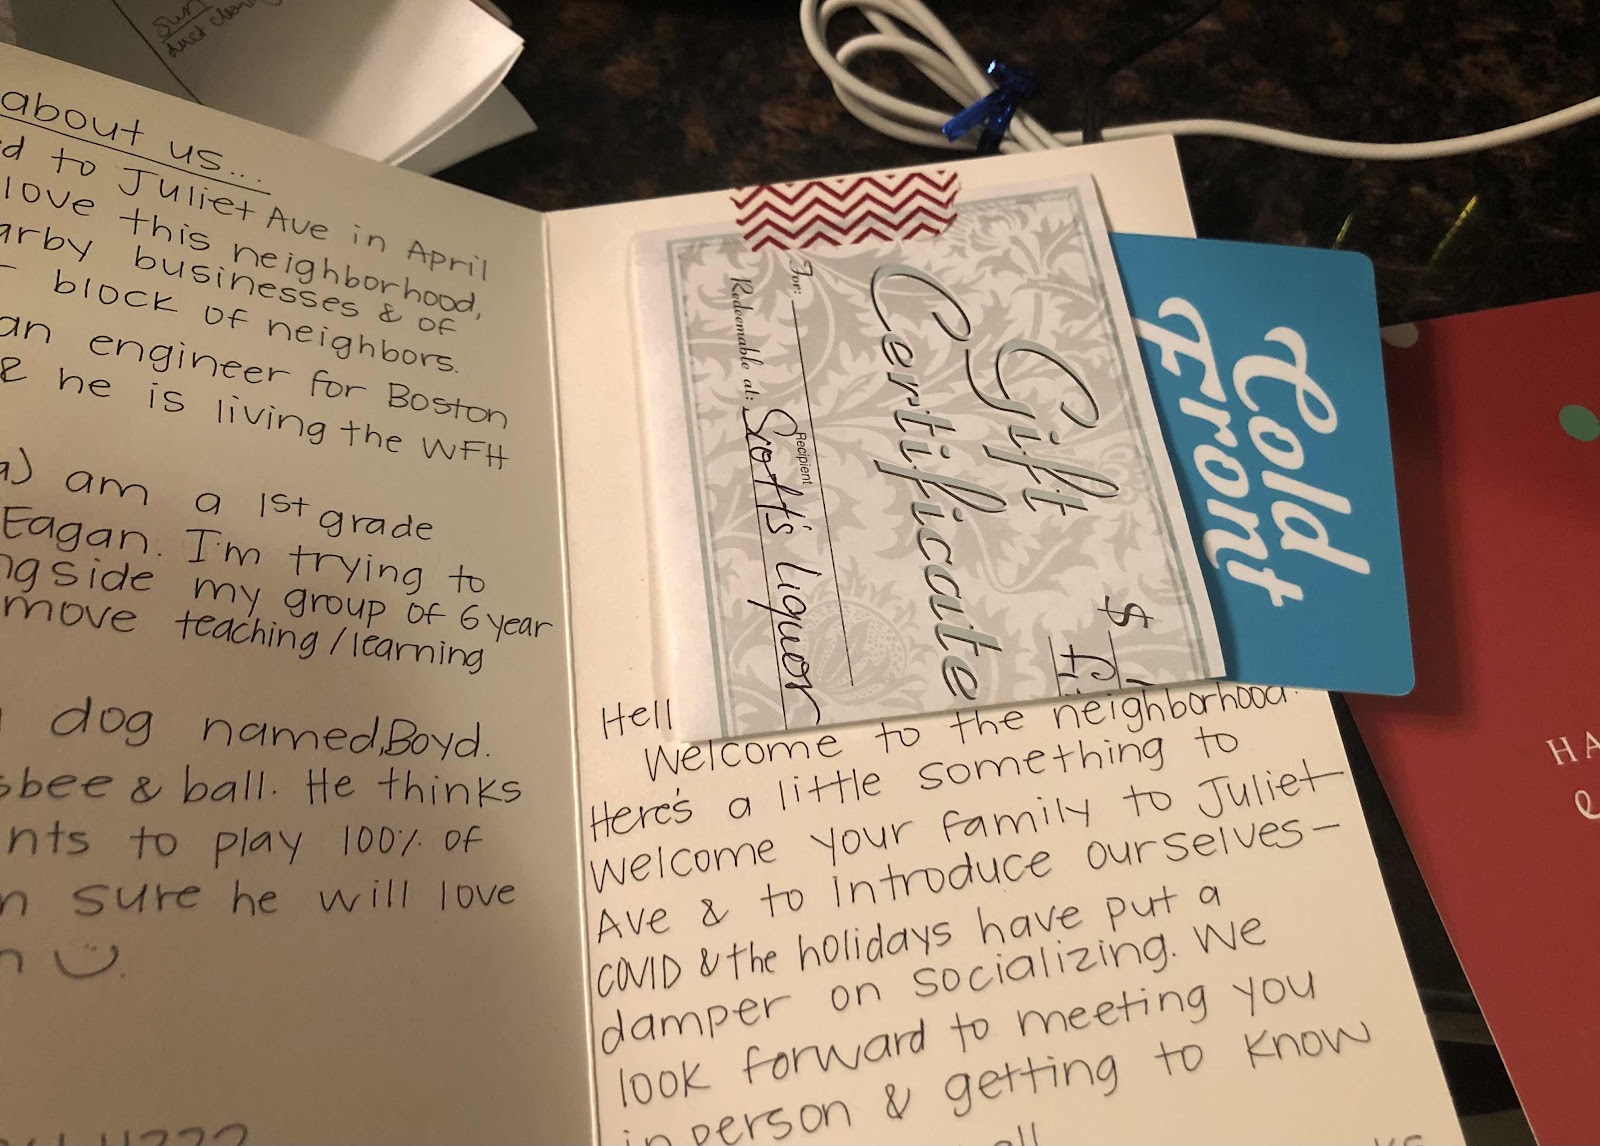 about us...
to Juliet Ave in April
love this neighborhood,
businesses & of
block of neighbors.
an engineer for Boston
& he is living the WFH
am a 1st grade
Eagan. I'm trying to
my group of 6 year
move teaching/learning
dog named, Boyd.
& ball. He thinks
to play 100% of
sure he will love
Gift
Certificate
$
For:
Recipient
Redeemable at: Scott's Liquor
Cold
Front
Hell
Welcome to the neighborhood.
Here's a little something to
welcome your family to Juliet
Ave & to introduce ourselves—
COVID & the holidays have put a
damper on socializing. We
look forward to meeting you
in person & getting to know